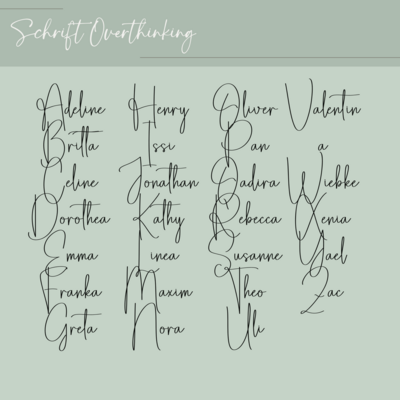 Schrift Overthinking
Adeline
Britta
Celine
Dorothea
Emma
Franka
Greta
Henry
Issi
Jonathan
Kathy
Linea
Maxim
Nora
Oliver
Pan
Qadira
Rebecca
Susanne
Theo
Uli
Valentin
a
Wiebke
Xenia
Yael
Zac